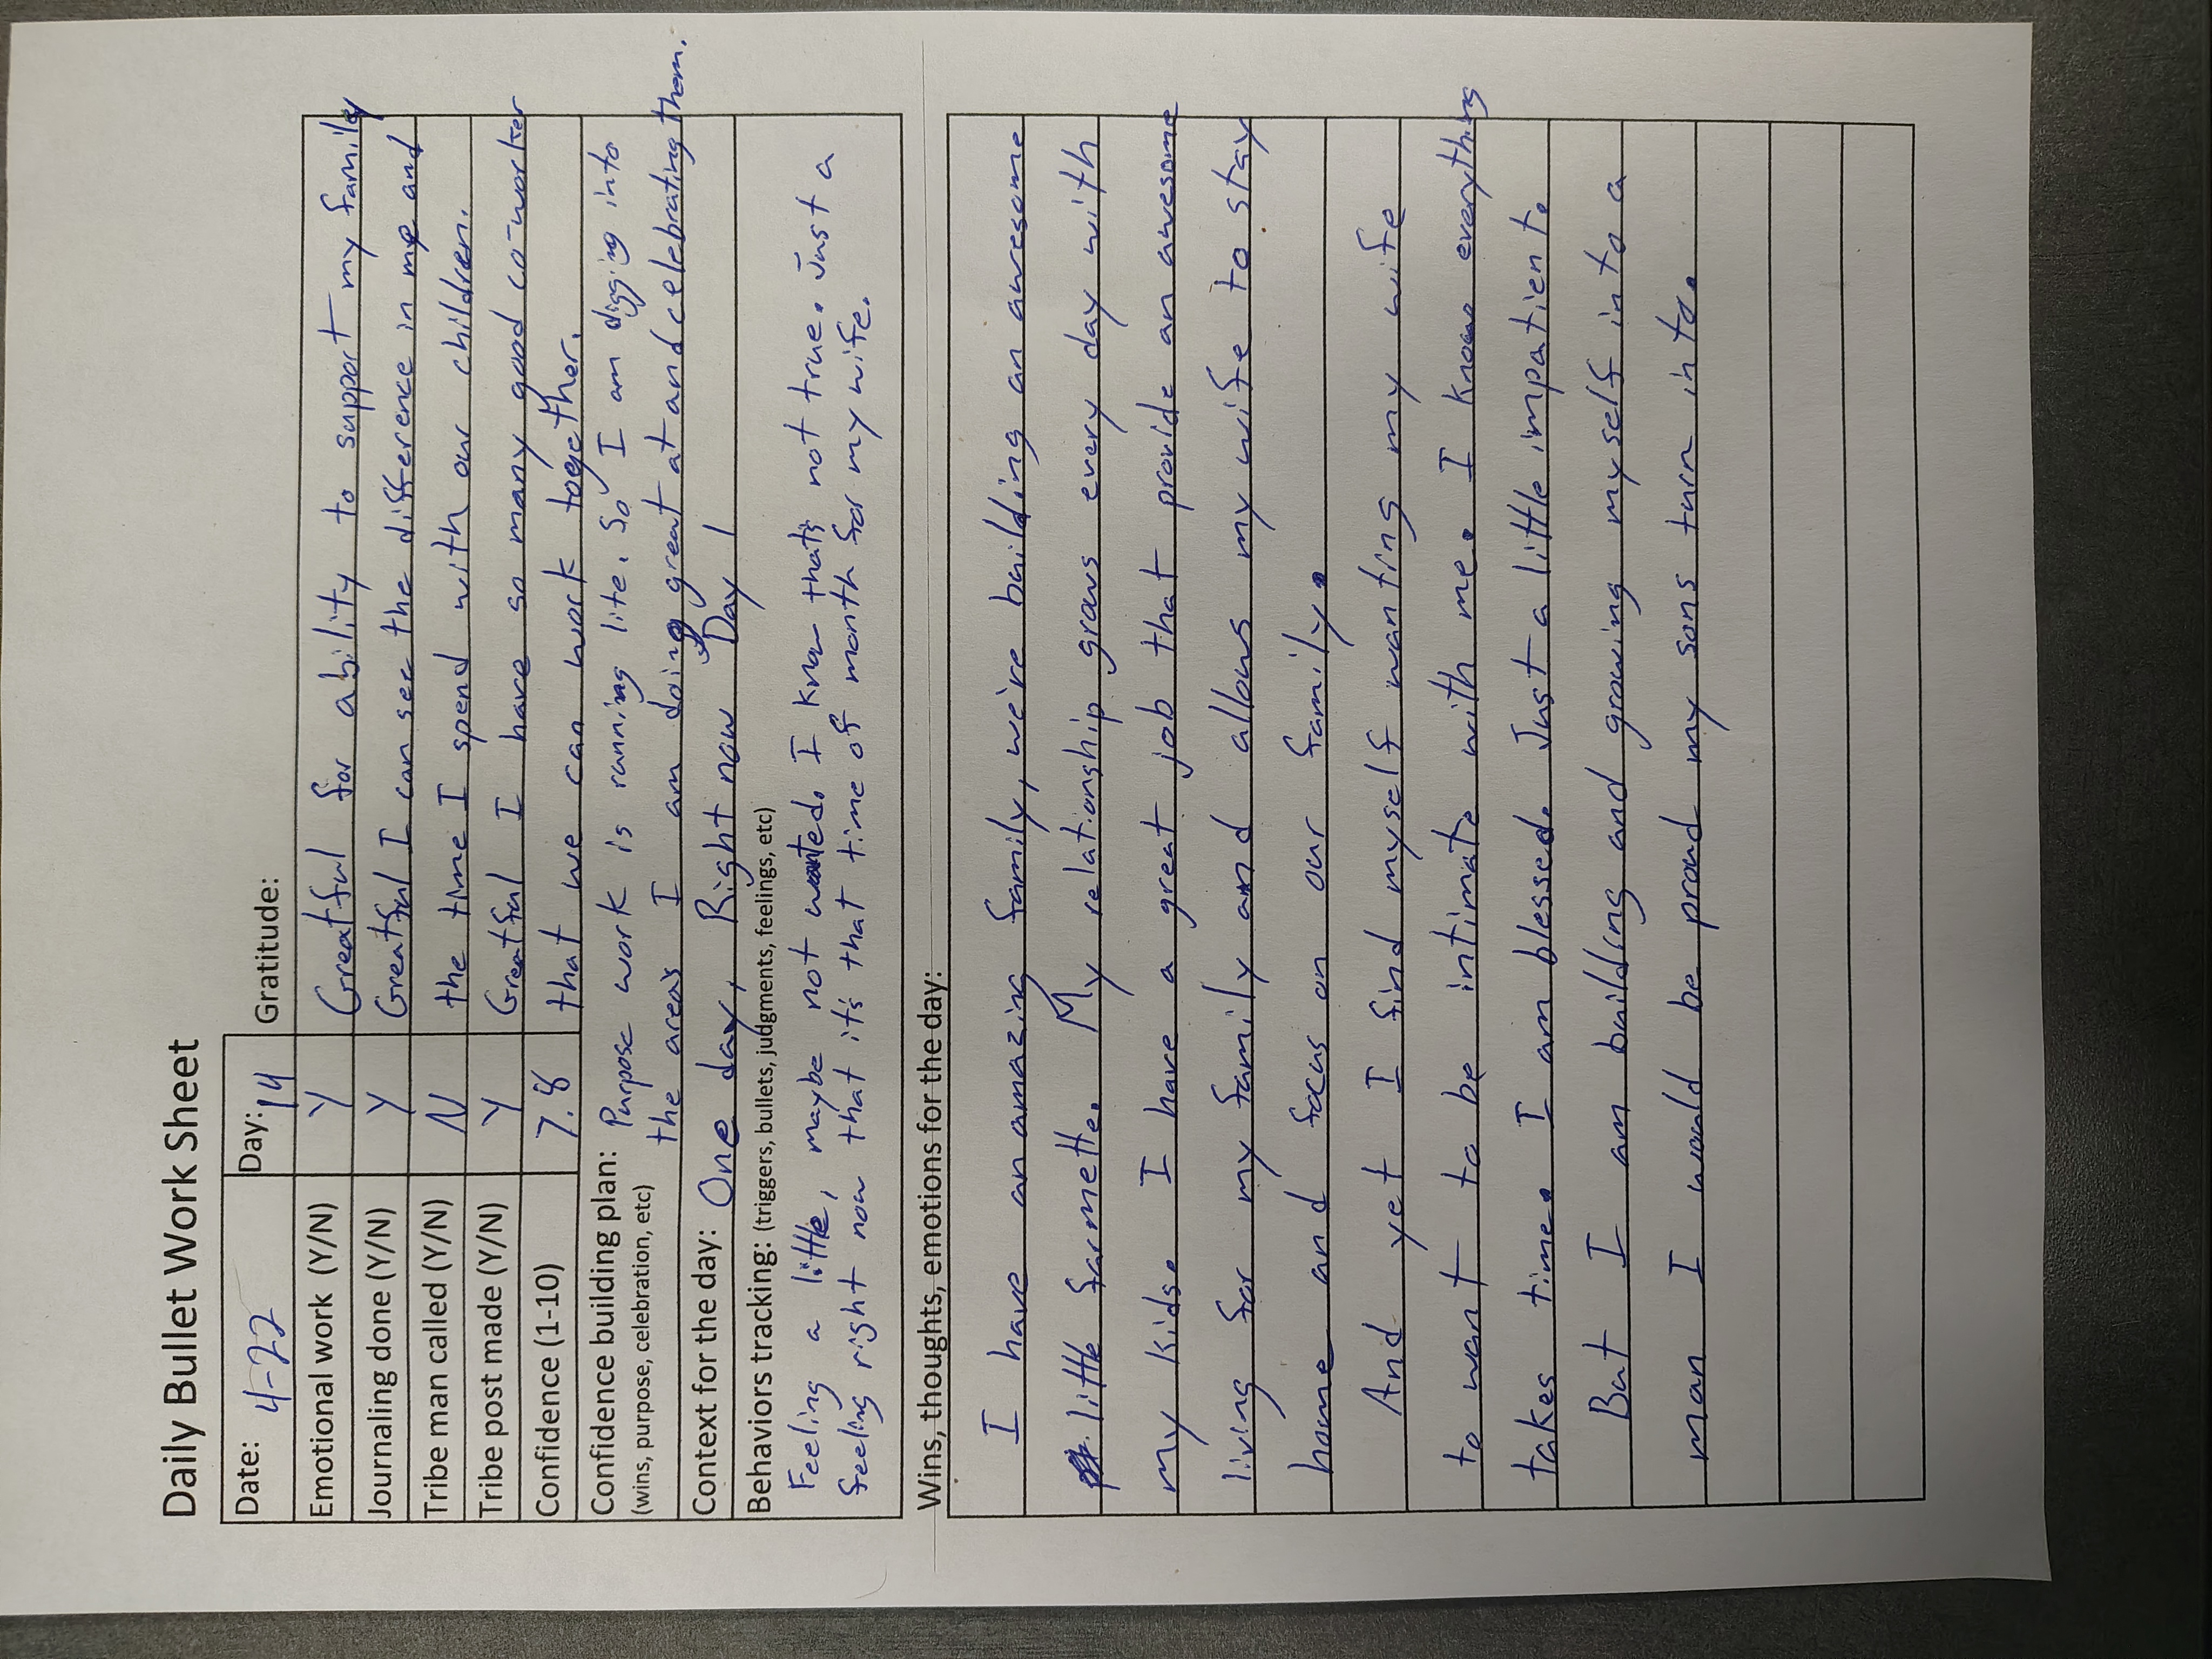 Daily Bullet Work Sheet
Date: 4-22 Day: 14 Gratitude:
Emotional work (Y/N) Y Greatful for ability to support my family
Journaling done (Y/N) Y Greatful I can see the difference in me and
Tribe man called (Y/N) N the time I spend with our children.
Tribe post made (Y/N) Y Greatful I have so many good co-worker
Confidence (1-10) 7.8 that we can work together.
Confidence building plan: Purpose work is running lite. So I am digging into
(wins, purpose, celebration, etc) the area's I am doing great at and celebrating them.
Context for the day: One day, Right now Day 1
Behaviors tracking: (triggers, bullets, judgments, feelings, etc)
Feeling a little, maybe not wanted. I know that's not true. Just a
feeling right now that it's that time of month for my wife.
Wins, thoughts, emotions for the day:
I have an amazing family, we're building an awesome
little farmette. My relationship grows every day with
my kids. I have a great job that provide an awesome
living for my family and allows my wife to stay
home and focus on our family.
And yet I find myself wanting my wife
to want to be intimate with me. I know everything
takes time. I am blessed. Just a little impatient.
But I am building and growing myself into a
man I would be proud my sons turn into.